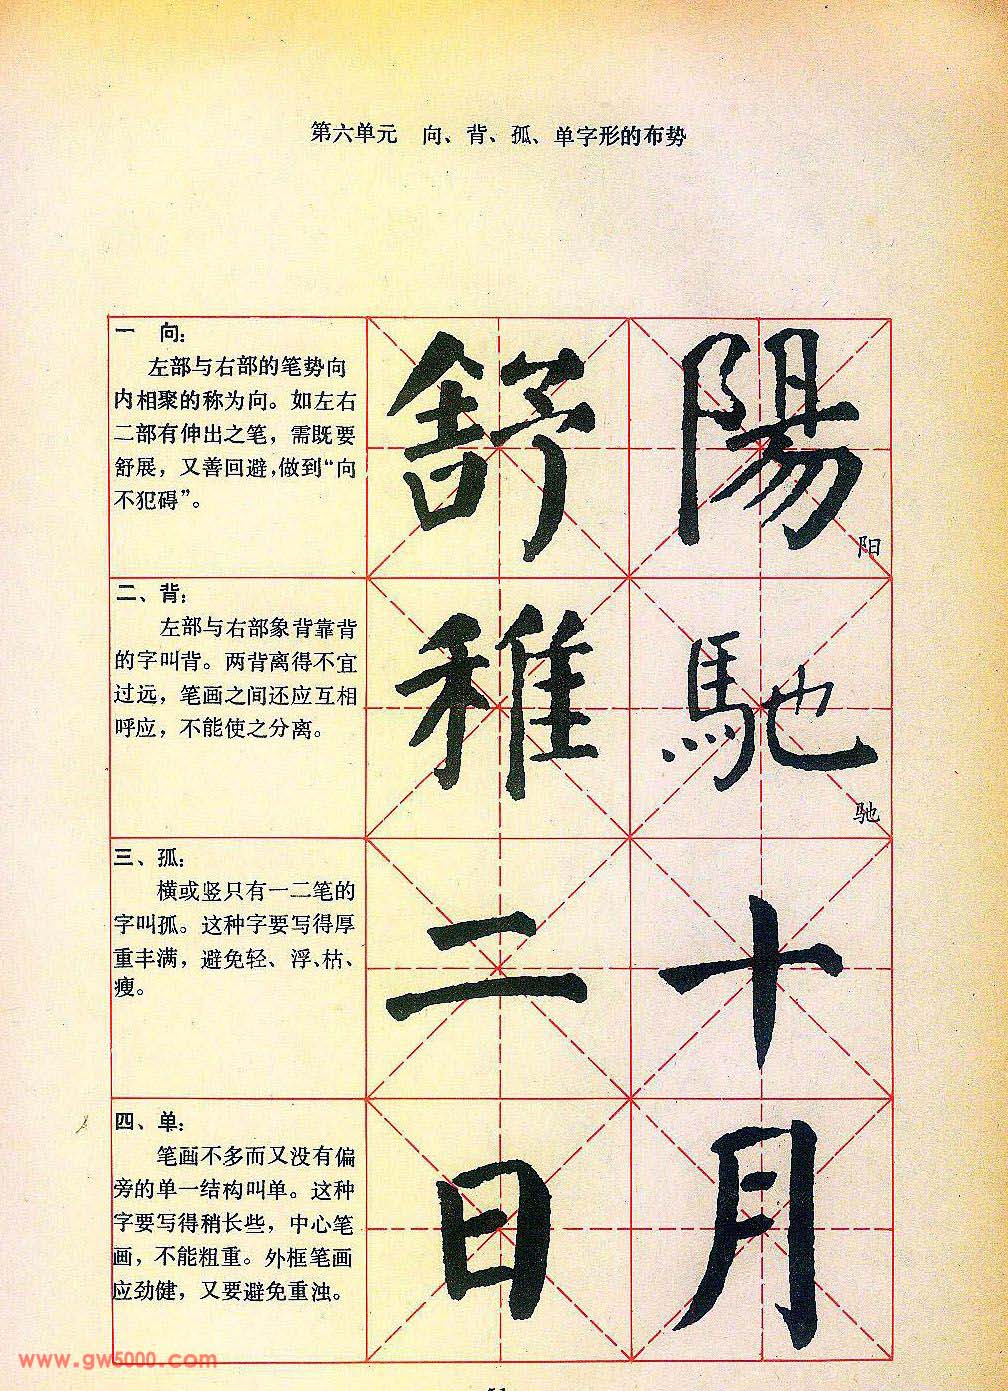 第六单元 向、背、孤、单字形的布势
一 向：
左部与右部的笔势向
内相聚的称为向。如左右
二部有伸出之笔，需既要
舒展，又善回避，做到“向
不犯碍”。
舒 陽
阳
二、背：
左部与右部象背靠背
的字叫背。两背离得不宜
过远，笔画之间还应互相
呼应，不能使之分离。
稚 馳
驰
三、孤：
横或竖只有一二笔的
字叫孤。这种字要写得厚
重丰满，避免轻、浮、枯、
瘦。
二 十
四、单：
笔画不多而又没有偏
旁的单一结构叫单。这种
字要写得稍长些，中心笔
画，不能粗重。外框笔画
应劲健，又要避免重浊。
日 月
www.gw5000.com